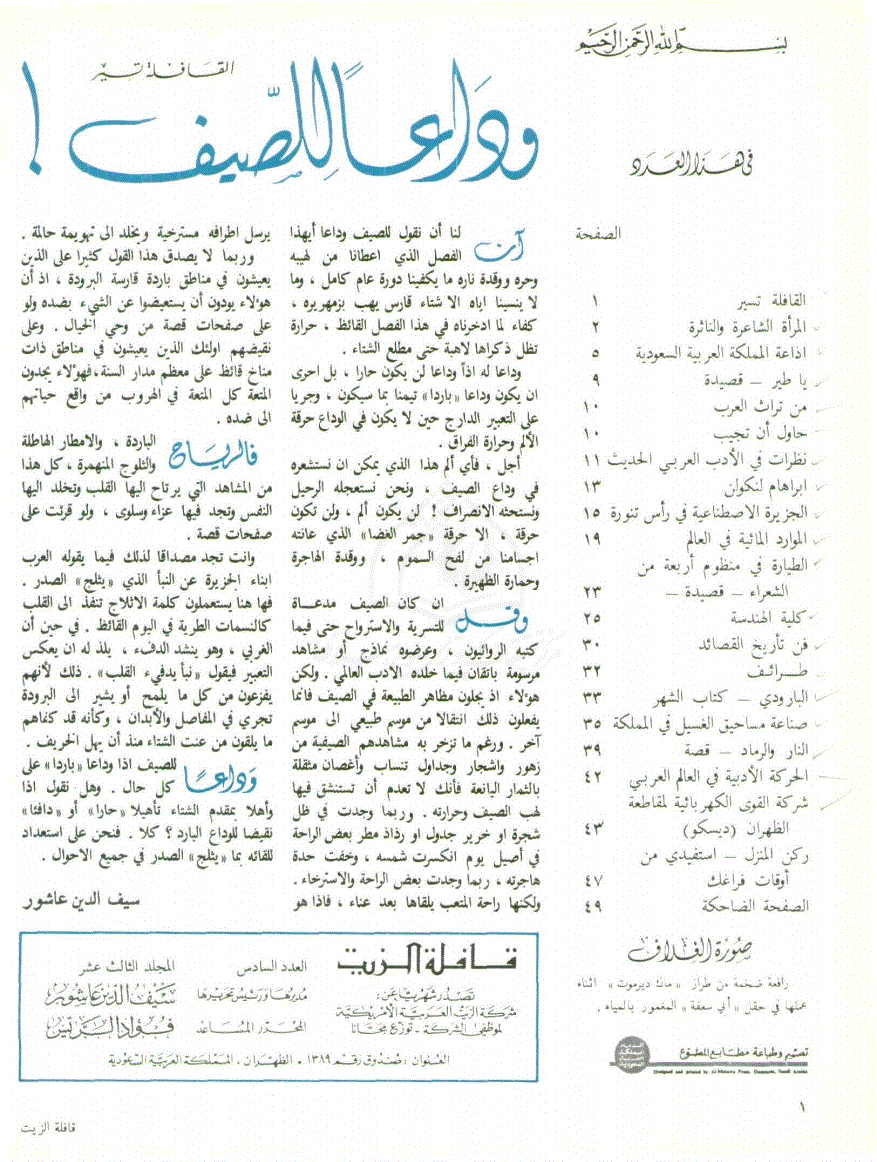 بسم الله الرحمن الرحيم
في هذا العدد
الصفحة
القافلة تسير ١
المرأة الشاعرة والناثرة ٢
اذاعة المملكة العربية السعودية ٥
يا طير – قصيدة ٩
من تراث العرب ١٠
حاول أن تجيب ١٠
نظرات في الأدب العربي الحديث ١١
ابراهام لنكولن ١٣
الجزيرة الاصطناعية في رأس تنورة ١٥
الموارد المائية في العالم ١٩
الطيارة في منظوم أربعة من
الشعراء – قصيدة – ٢٣
كلية الهندسة ٢٥
فن تأريخ القصائد ٣٠
طرائف ٣٢
البارودي – كتاب الشهر ٣٣
صناعة مساحيق الغسيل في المملكة ٣٥
النار والرماد – قصة ٣٩
الحركة الأدبية في العالم العربي ٤٢
شركة القوى الكهربائية لمقاطعة
الظهران (ديسكو) ٤٣
ركن المنزل – استفيدي من
أوقات فراغك ٤٧
الصفحة الضاحكة ٤٩
صورة الغلاف
رافعة ضخمة من طراز «ماك ديرموت» اثناء
عملها في حقل «أبي سعفة» المغمور بالمياه .
تصميم وطباعة مطابع المطوع
Designed and printed by Al-Mutawa Press, Dammam, Saudi Arabia
القافلة تسير
وداعاً للصّيف !
آن لنا أن نقول للصيف وداعا أيهذا
الفصل الذي اعطانا من لهيبه
وحره ووقدة ناره ما يكفينا دورة عام كامل ، وما
لا ينسينا اياه الا شتاء قارس يهب بزمهريره ،
كفاء لما ادخرناه في هذا الفصل القائظ ، حرارة
تظل ذكراها لاهبة حتى مطلع الشتاء .
وداعا له اذاً وداعا لن يكون حارا ، بل احرى
ان يكون وداعا «باردا» تيمنا بما سيكون ، وجريا
على التعبير الدارج حين لا يكون في الوداع حرقة
الألم وحرارة الفراق .
أجل ، فأي ألم هذا الذي يمكن ان نستشعره
في وداع الصيف ، ونحن نستعجله الرحيل
ونستحثه الانصراف ! لن يكون ألم ، ولن تكون
حرقة ، الا حرقة «جمر الغضا» الذي عانته
اجسامنا من لفح السموم ، ووقدة الهاجرة
وحمارة الظهيرة .
وقل ان كان الصيف مدعاة
للتسرية والاسترواح حتى فيما
كتبه الروائيون ، وعرضوه نماذج أو مشاهد
مرسومة باتقان فيما خلده الادب العالمي . ولكن
هؤلاء اذ يجلون مظاهر الطبيعة في الصيف فانما
يفعلون ذلك انتقالا من موسم طبيعي الى موسم
آخر . ورغم ما تزخر به مشاهدهم الصيفية من
زهور واشجار وجداول تنساب وأغصان مثقلة
بالثمار اليانعة فأنك لا تعدم أن تستنشق فيها
لهب الصيف وحرارته . وربما وجدت في ظل
شجرة او خرير جدول او رذاذ مطر بعض الراحة
في أصيل يوم انكسرت شمسه ، وخفت حدة
هاجرته ، ربما وجدت بعض الراحة والاسترخاء .
ولكنها راحة المتعب يلقاها بعد عناء ، فاذا هو
يرسل اطرافه مسترخية ويخلد الى تهويمة حالمة .
وربما لا يصدق هذا القول كثيرا على الذين
يعيشون في مناطق باردة قارسة البرودة ، اذ أن
هؤلاء يودون أن يستعيضوا عن الشيء بضده ولو
على صفحات قصة من وحي الخيال . وعلى
نقيضهم اولئك الذين يعيشون في مناطق ذات
مناخ قائظ على معظم مدار السنة،فهؤلاء يجدون
المتعة كل المتعة في الهروب من واقع حياتهم
الى ضده .
فالرياح الباردة ، والامطار الهاطلة
والثلوج المنهمرة ، كل هذا
من المشاهد التي يرتاح اليها القلب وتخلد اليها
النفس وتجد فيها عزاء وسلوى ، ولو قرئت على
صفحات قصة .
وانت تجد مصداقا لذلك فيما يقوله العرب
ابناء الجزيرة عن النبأ الذي «يثلج» الصدر .
فها هنا يستعملون كلمة الاثلاج تنفذ الى القلب
كالنسمات الطرية في اليوم القائظ . في حين أن
الغربي ، وهو ينشد الدفء ، يلذ له ان يعكس
التعبير فيقول «نبأ يدفيء القلب» . ذلك لأنهم
يفزعون من كل ما يلمح أو يشير الى البرودة
تجري في المفاصل والأبدان ، وكأنه قد كفاهم
ما يلقون من عنت الشتاء منذ أن يهل الخريف .
وداعاً للصيف اذا وداعا «باردا» على
كل حال . وهل نقول اذا
وأهلا بمقدم الشتاء تأهيلا «حارا» أو «دافئا»
نقيضا للوداع البارد ؟ كلا . فنحن على استعداد
للقائه بما «يثلج» الصدر في جميع الاحوال .
سيف الدين عاشور
قافلة الزيت
تصدر شهريًا عن:
شركة الزيت العربية الأمريكية
لموظفي الشركة – توزع مجانًا
العدد السادس المجلد الثالث عشر
مديرها ورئيس تحريرها سيف الدين عاشور
المحرر المساعد فؤاد الريس
العنوان : صندوق رقم ١٣٨٩ - الظهران ، المملكة العربية السعودية
١
قافلة الزيت